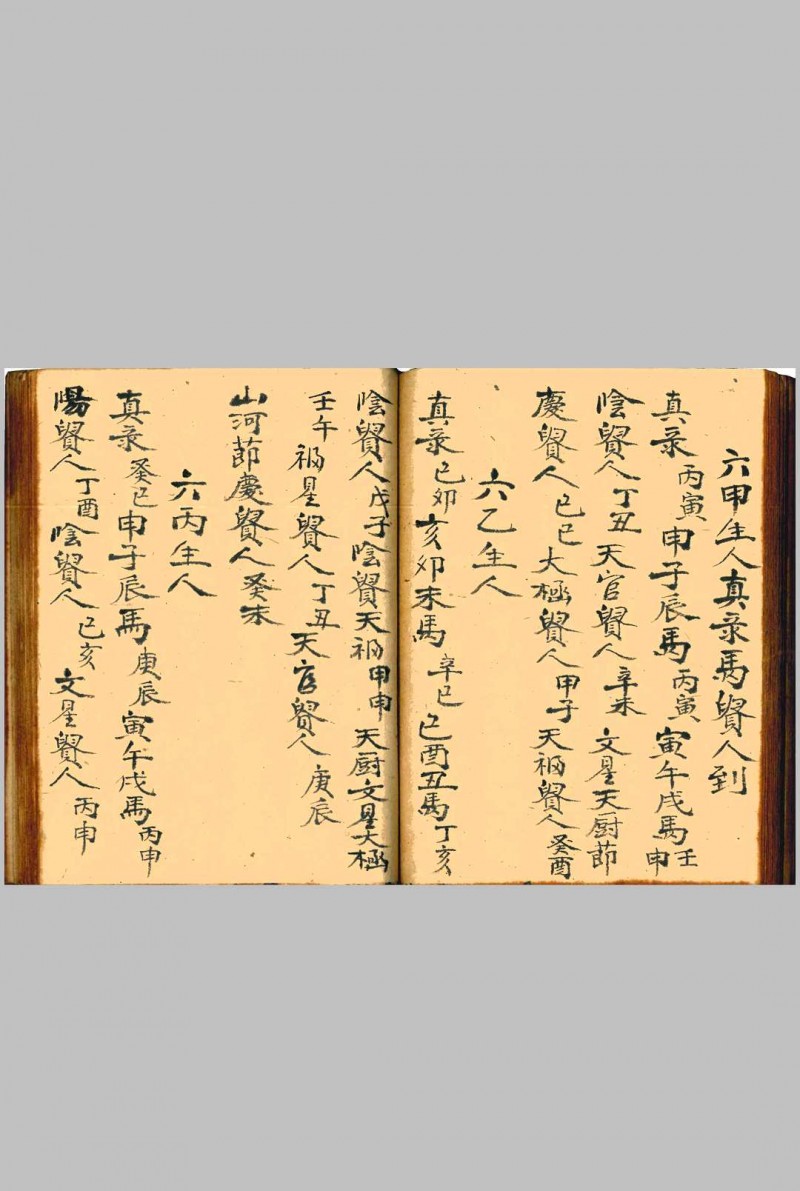 六甲生人真彔馬貴人到
真彔丙寅申子辰馬丙寅寅午戌馬壬申
陰貴人丁丑天官貴人辛未文星天厨節
慶貴人己巳太極貴人甲子天福貴人癸酉
六乙生人
真彔己卯亥卯未馬辛巳巳酉丑馬丁亥
陰貴人戊子陰貴天福甲申天厨文星太極
壬午福星貴人丁丑天官貴人庚辰
山河節慶貴人癸未
六丙生人
真彔癸巳申子辰馬庚辰寅午戌馬丙申
陽貴人丁酉陰貴人己亥文星貴人丙申